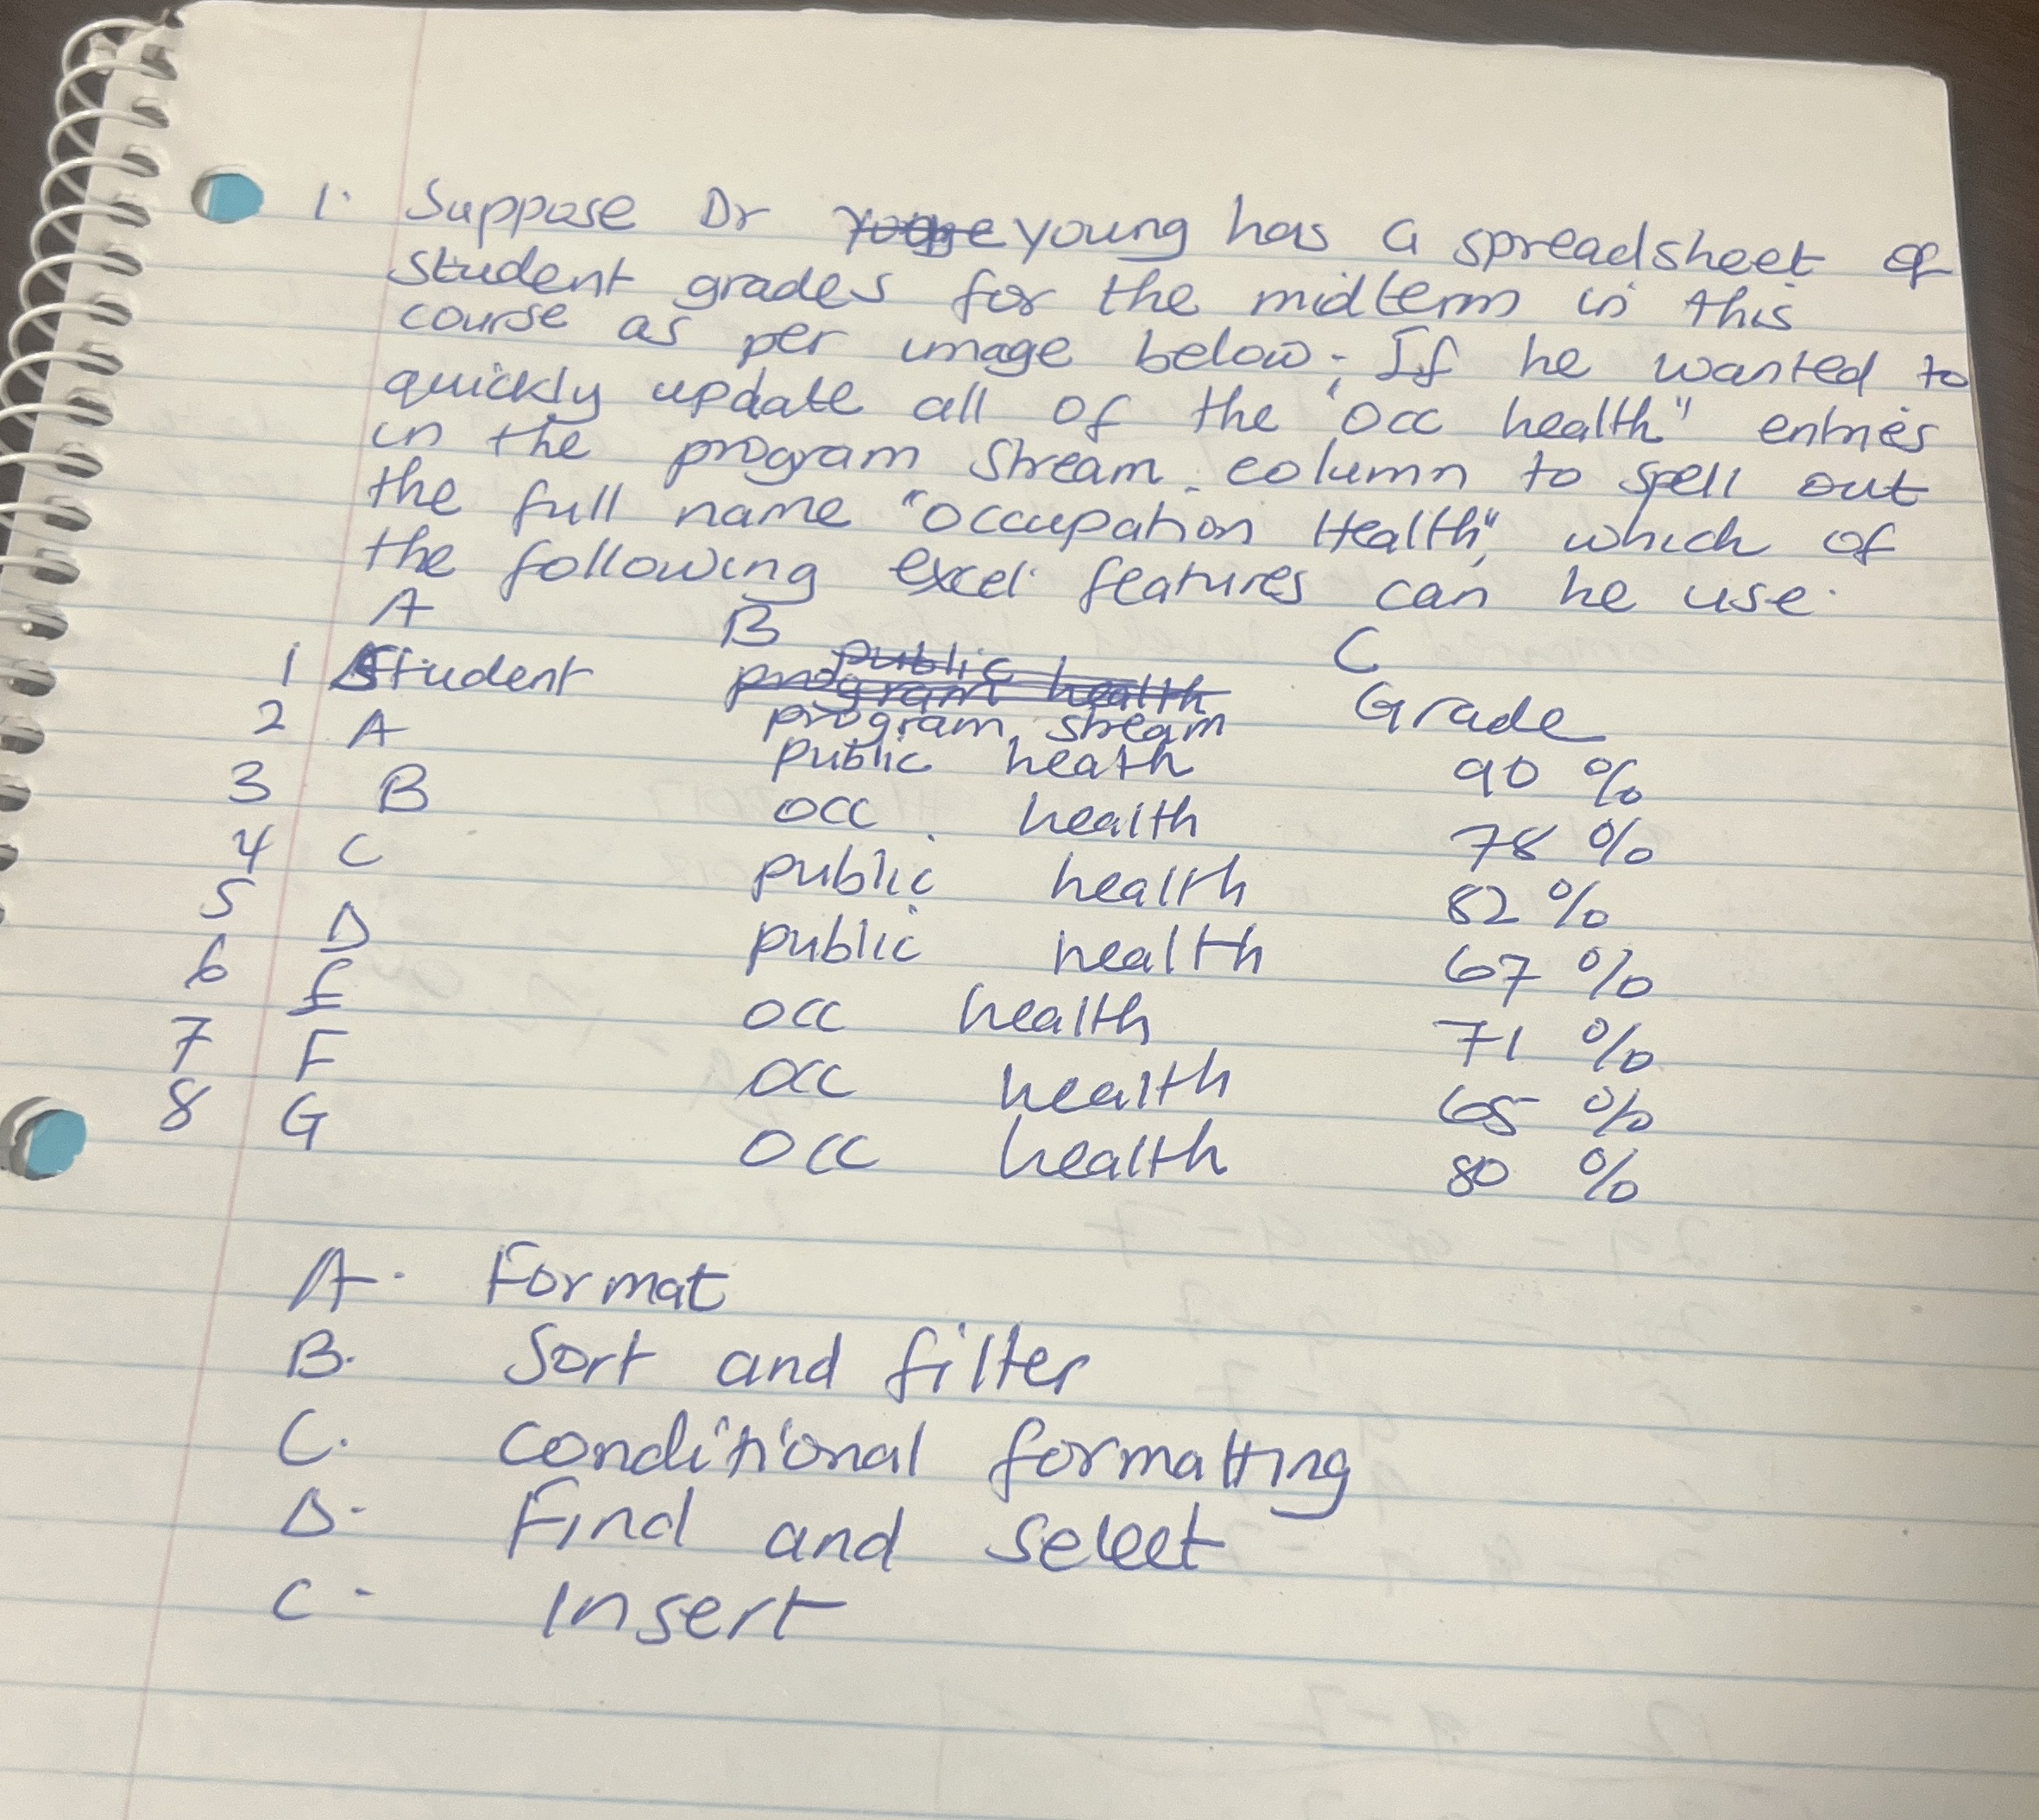 1. Suppose Dr young has a spreadsheet of
student grades for the midterm in this
course as per image below. If he wanted to
quickly update all of the "occ health" entries
in the program stream column to spell out
the full name "occupation Health", which of
the following excel features can he use.
A B C
1 Student program stream Grade
2 A public heath 90 %
3 B occ health 78 %
4 C public health 82 %
5 D public health 67 %
6 E occ health 71 %
7 F occ health 65 %
8 G occ health 80 %
A. Format
B. Sort and filter
C. conditional formatting
D. Find and select
C - Insert